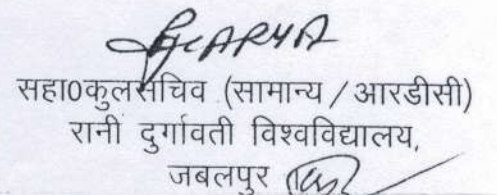 सहा0कुलसचिव (सामान्य / आरडीसी)
रानी दुर्गावती विश्वविद्यालय,
जबलपुर